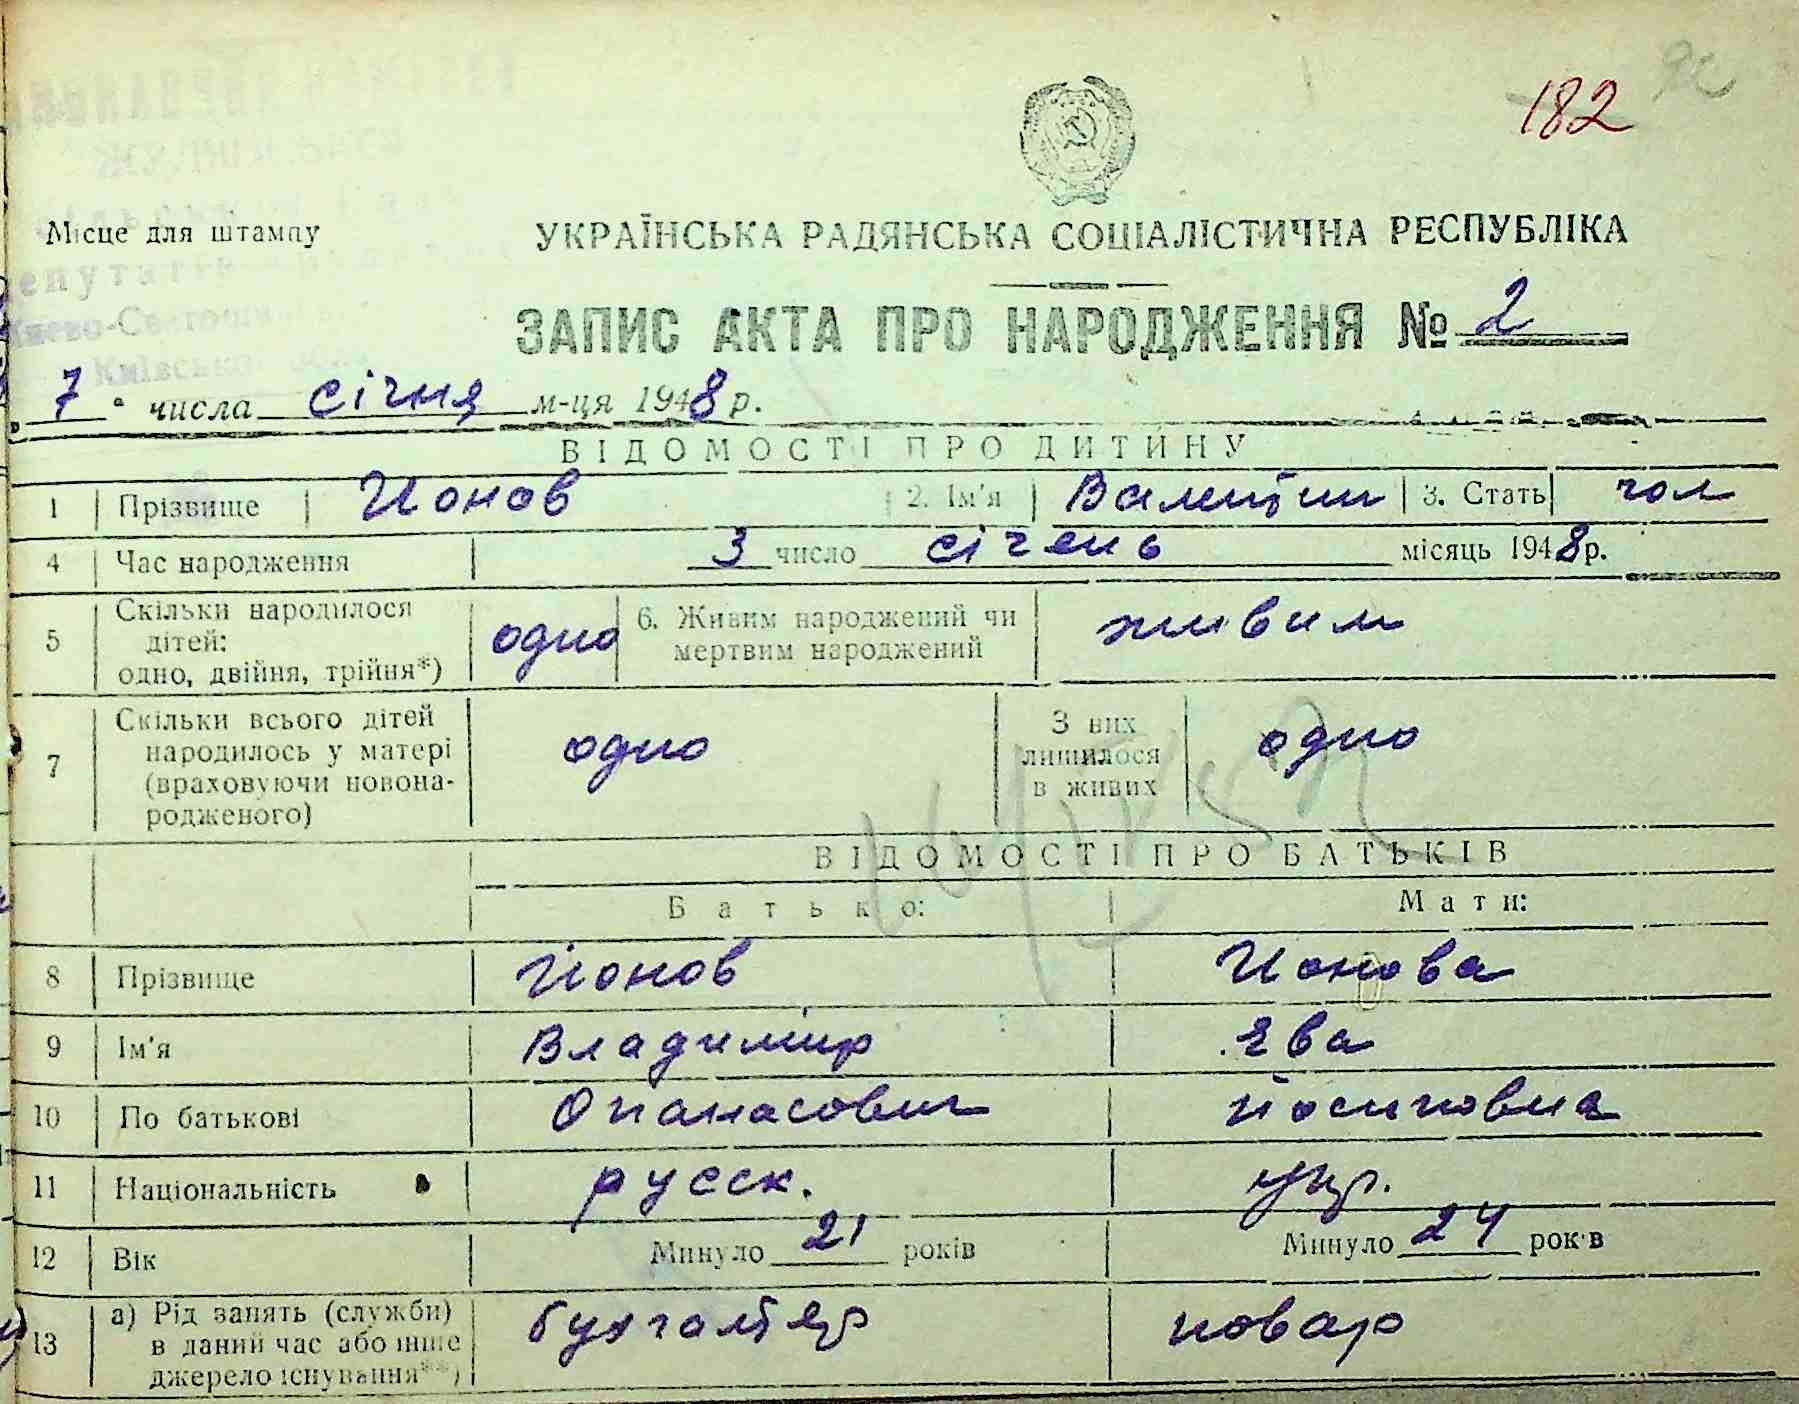 182
Місце для штампу
УКРАЇНСЬКА РАДЯНСЬКА СОЦІАЛІСТИЧНА РЕСПУБЛІКА
ЗАПИС АКТА ПРО НАРОДЖЕННЯ № 2
Києво-Святоши
7 " числа січня м-ця 1948 р.
ВІДОМОСТІ ПРО ДИТИНУ
1 Прізвище Ионов 2. Ім'я Валентин 3. Стать чол
4 Час народження 3 число січень місяць 1948 р.
5 Скільки народилося дітей: одно, двійня, трійня*) одно 6. Живим народжений чи мертвим народжений живим
7 Скільки всього дітей народилось у матері (враховуючи новонародженого) одно З них лишилося в живих одно
ВІДОМОСТІ ПРО БАТЬКІВ
Батько: Мати:
8 Прізвище Йонов Ионова
9 Ім'я Владимир Ева
10 По батькові Опанасович Йосиповна
11 Національність русск. укр.
12 Вік Минуло 21 років Минуло 24 років
13 а) Рід занять (служби) в даний час або інше джерело існування**) бухгалтер повар